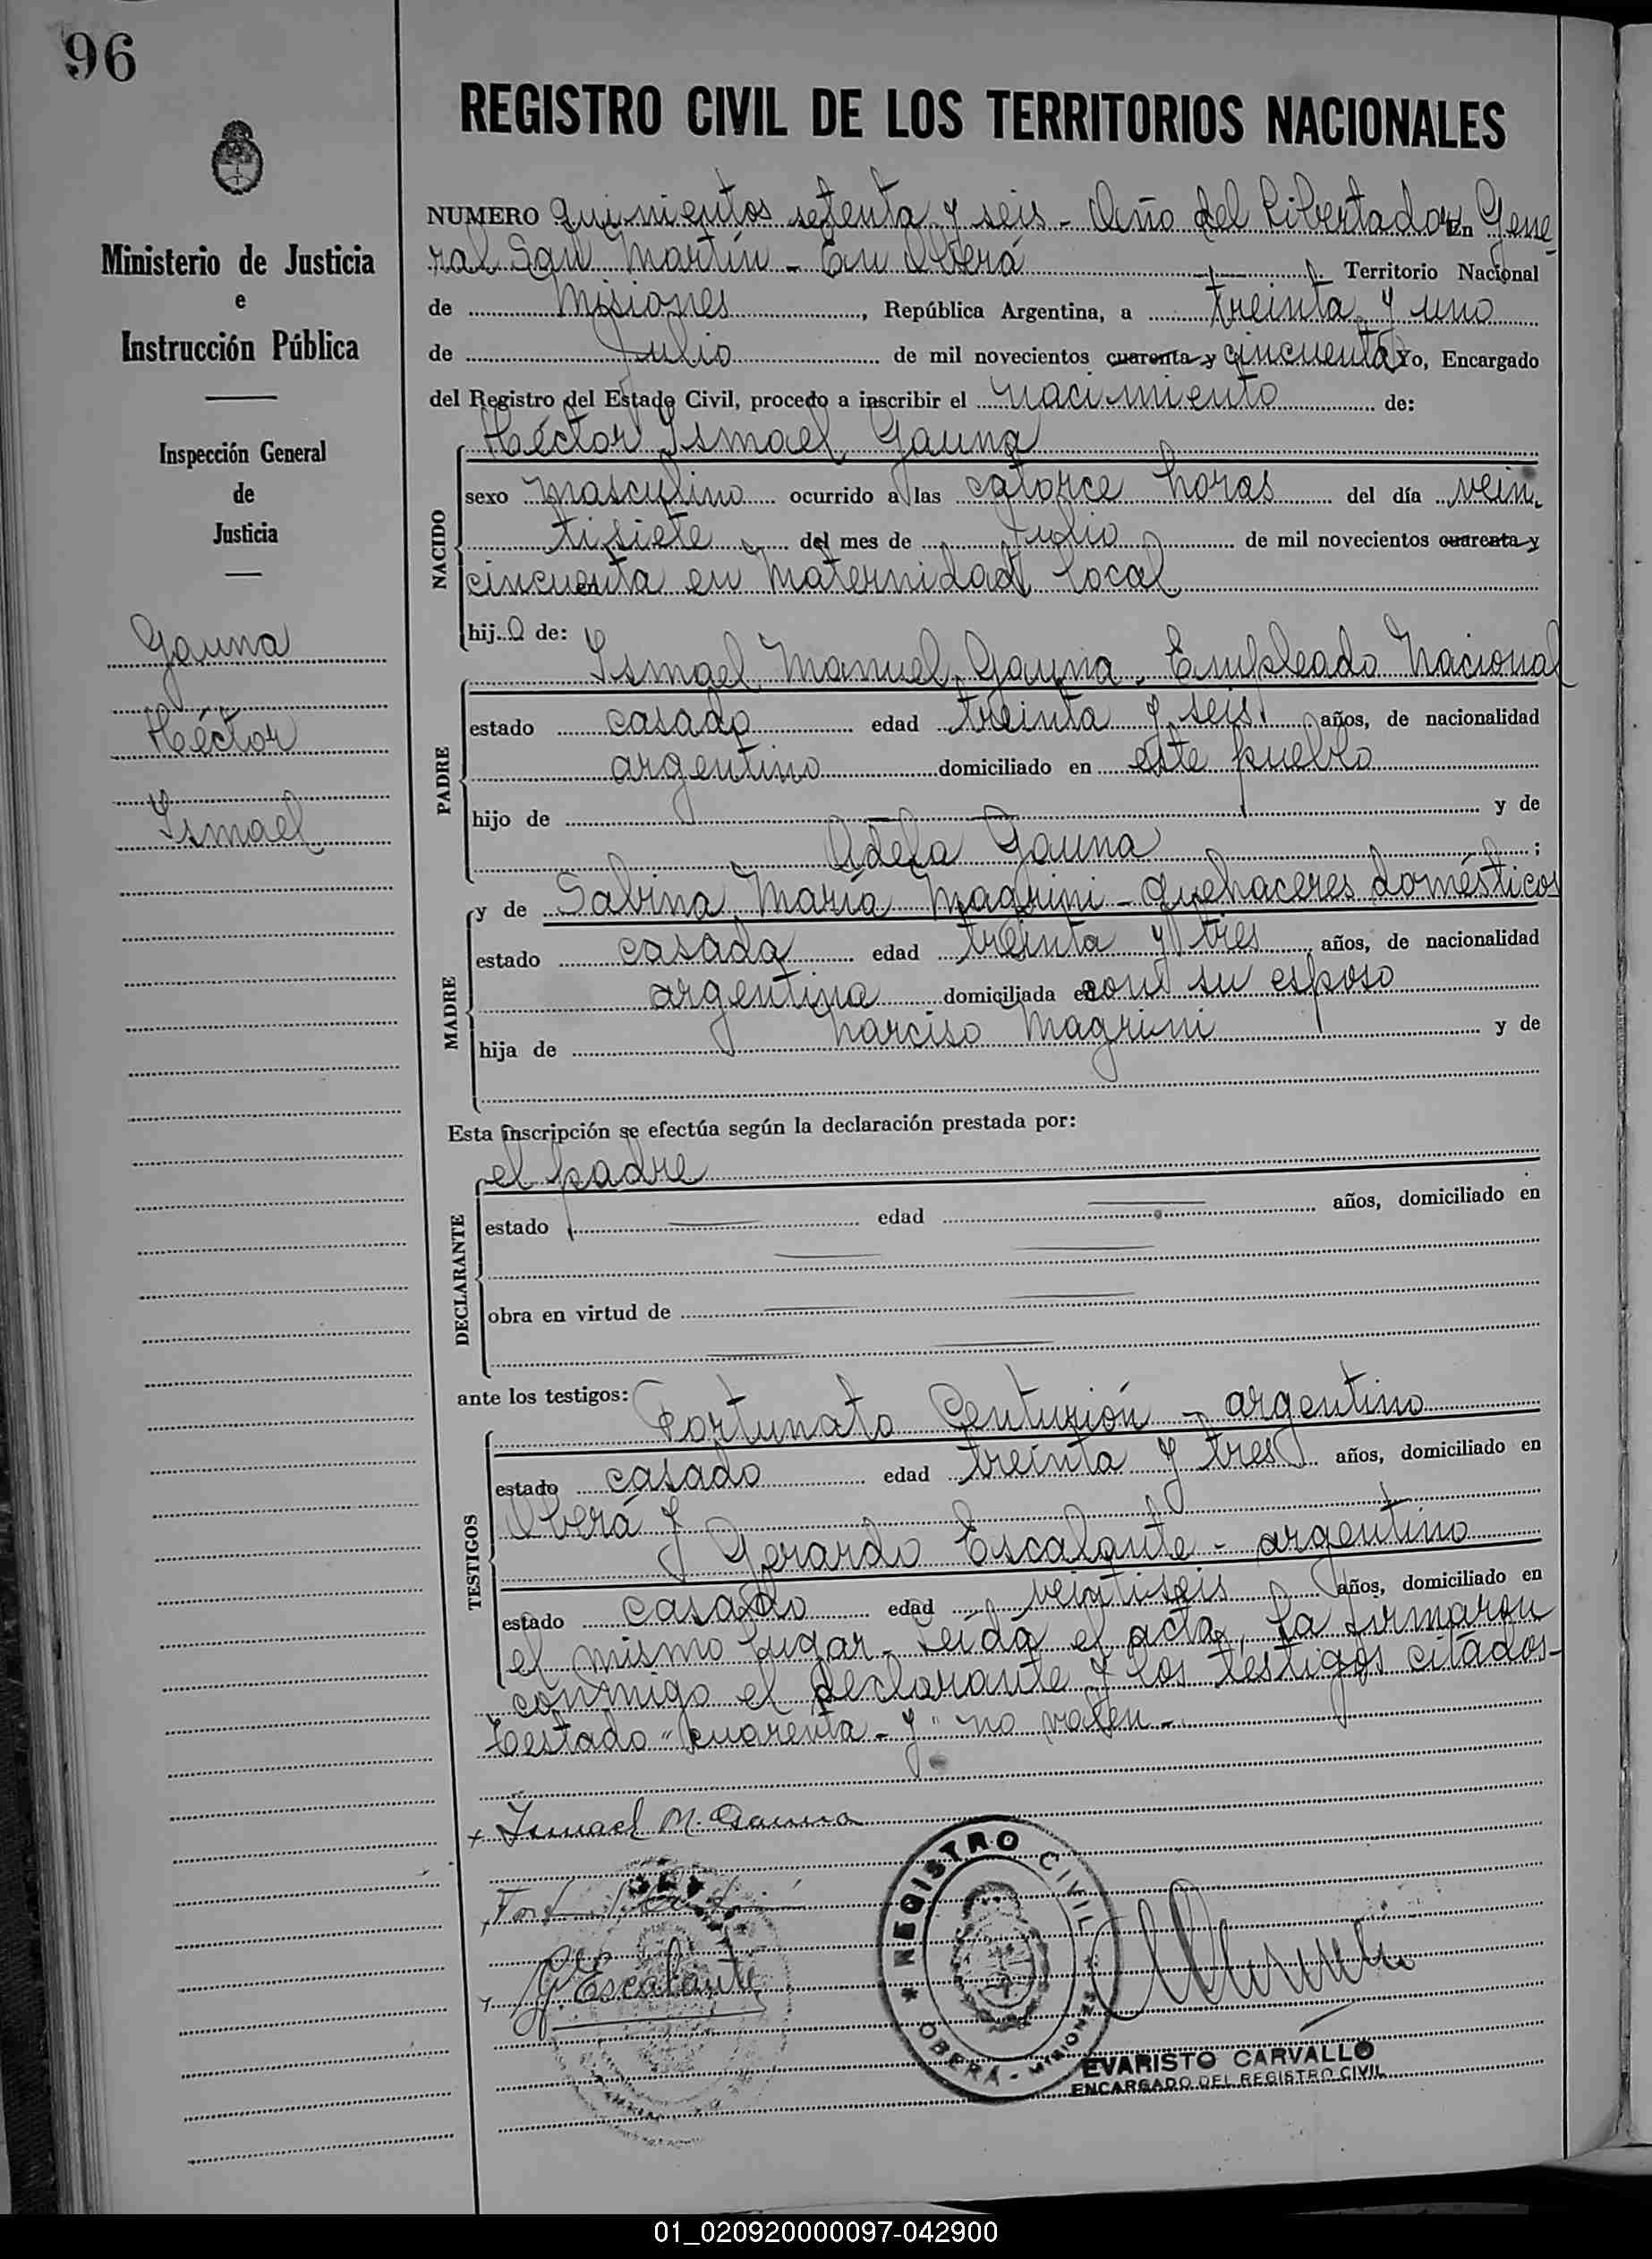 96
REGISTRO CIVIL DE LOS TERRITORIOS NACIONALES
Ministerio de Justicia
e
Instrucción Pública
Inspección General
de
Justicia
Gauna
Héctor
Ismael
NUMERO quinientos setenta y seis - Año del Libertador En Gene
ral San Martín - En Oberá Territorio Nacional
de Misiones, República Argentina, a treinta y uno
de Julio de mil novecientos cuarenta y cincuenta Yo, Encargado
del Registro del Estado Civil, procedo a inscribir el nacimiento de:
Héctor Ismael Gauna
NACIDO
sexo masculino ocurrido a las catorce horas del día vein
tisiete del mes de Julio de mil novecientos cuarenta y
cincuenta en Maternidad local
hijo de:
PADRE
Ismael Manuel Gauna, Empleado Nacional
estado casado edad treinta y seis años, de nacionalidad
argentino domiciliado en este pueblo
hijo de y de
Adela Gauna ;
MADRE
y de Sabina María Magrini - quehaceres domésticos
estado casada edad treinta y tres años, de nacionalidad
argentina domiciliada en con su esposo
hija de Narciso Magrini y de
Esta inscripción se efectúa según la declaración prestada por:
el padre
DECLARANTE
estado edad años, domiciliado en
obra en virtud de
ante los testigos:
TESTIGOS
Fortunato Centurión - argentino
estado casado edad treinta y tres años, domiciliado en
Oberá y
Gerardo Escalante - argentino
estado casado edad veintiseis años, domiciliado en
el mismo lugar. Leída el acta, la firmaron
conmigo el declarante y los testigos citados-
Testado "cuarenta - y" no valen -
+ Ismael M. Gauna
G. Escalante
REGISTRO CIVIL
OBERÁ - MISIONES
EVARISTO CARVALLO
ENCARGADO DEL REGISTRO CIVIL
01_020920000097-042900